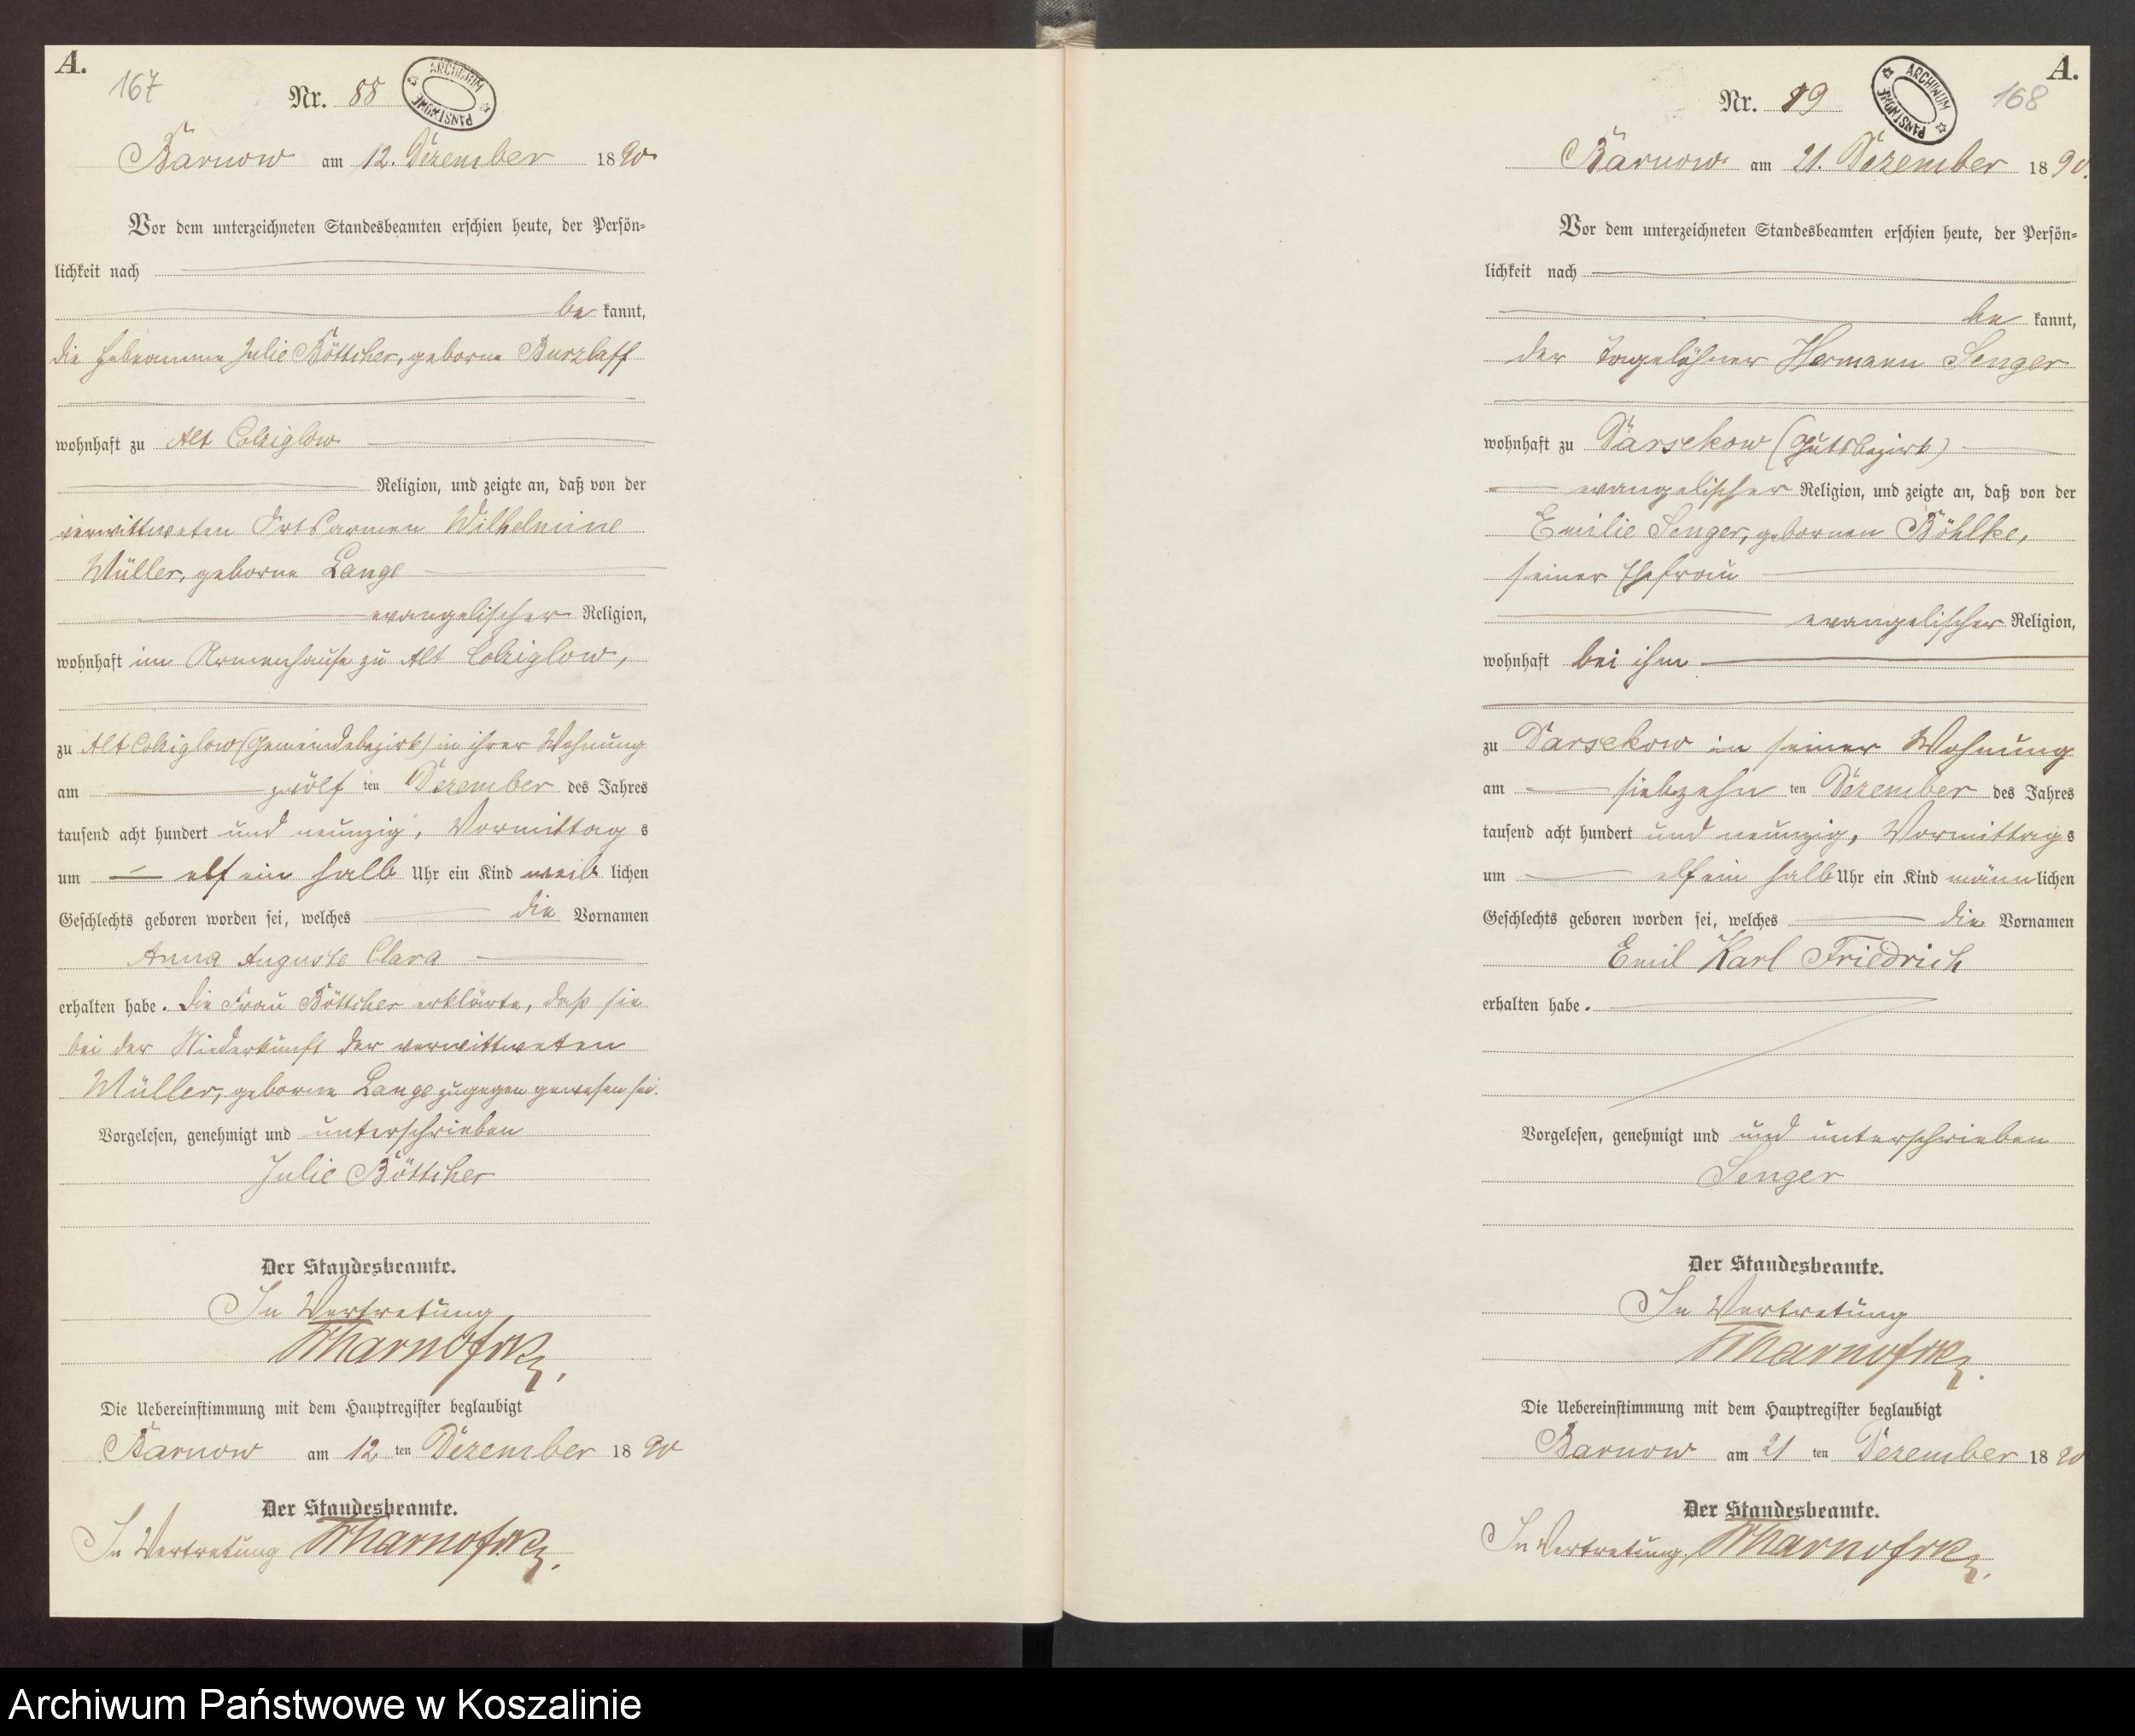 A.
167
Nr. 88
ARCHIWUM PAŃSTWOWE
Barnow am 12. Dezember 1890
Vor dem unterzeichneten Standesbeamten erschien heute, der Persön-
lichkeit nach
be kannt,
die Hebeamme Julie Böttcher, geborne Burzlaff
wohnhaft zu Alt Colziglow
Religion, und zeigte an, daß von der
verwittweten Ortsarmen Wilhelmine
Müller, geborne Lange
evangelischer Religion,
wohnhaft im Armenhause zu Alt Colziglow,
zu Alt Colziglow (Gemeindebezirk) in ihrer Wohnung
am zwölf ten Dezember des Jahres
tausend acht hundert und neunzig, Vormittag s
um elf ein halb Uhr ein Kind weib lichen
Geschlechts geboren worden sei, welches die Vornamen
Anna Auguste Clara
erhalten habe. Die Frau Böttcher erklärte, daß sie
bei der Niederkunft der verwittweten
Müller, geborne Lange zugegen gewesen sei.
Vorgelesen, genehmigt und unterschrieben
Julie Böttcher
Der Standesbeamte.
In Vertretung
Die Uebereinstimmung mit dem Hauptregister beglaubigt
Barnow am 12 ten Dezember 1890
Der Standesbeamte.
In Vertretung
A.
168
Nr. 89
ARCHIWUM PAŃSTWOWE
Barnow am 21. Dezember 1890.
Vor dem unterzeichneten Standesbeamten erschien heute, der Persön-
lichkeit nach
be kannt,
der Tagelöhner Hermann Senger
wohnhaft zu Darsekow (Gutsbezirk)
evangelischer Religion, und zeigte an, daß von der
Emilie Senger, gebornen Böhlke,
seiner Ehefrau
evangelischer Religion,
wohnhaft bei ihm
zu Darsekow in seiner Wohnung
am siebzehn ten Dezember des Jahres
tausend acht hundert und neunzig, Vormittag s
um elf ein halb Uhr ein Kind männ lichen
Geschlechts geboren worden sei, welches die Vornamen
Emil Karl Friedrich
erhalten habe.
Vorgelesen, genehmigt und und unterschrieben
Senger
Der Standesbeamte.
In Vertretung
Die Uebereinstimmung mit dem Hauptregister beglaubigt
Barnow am 21 ten Dezember 1890
Der Standesbeamte.
In Vertretung,
Archiwum Państwowe w Koszalinie